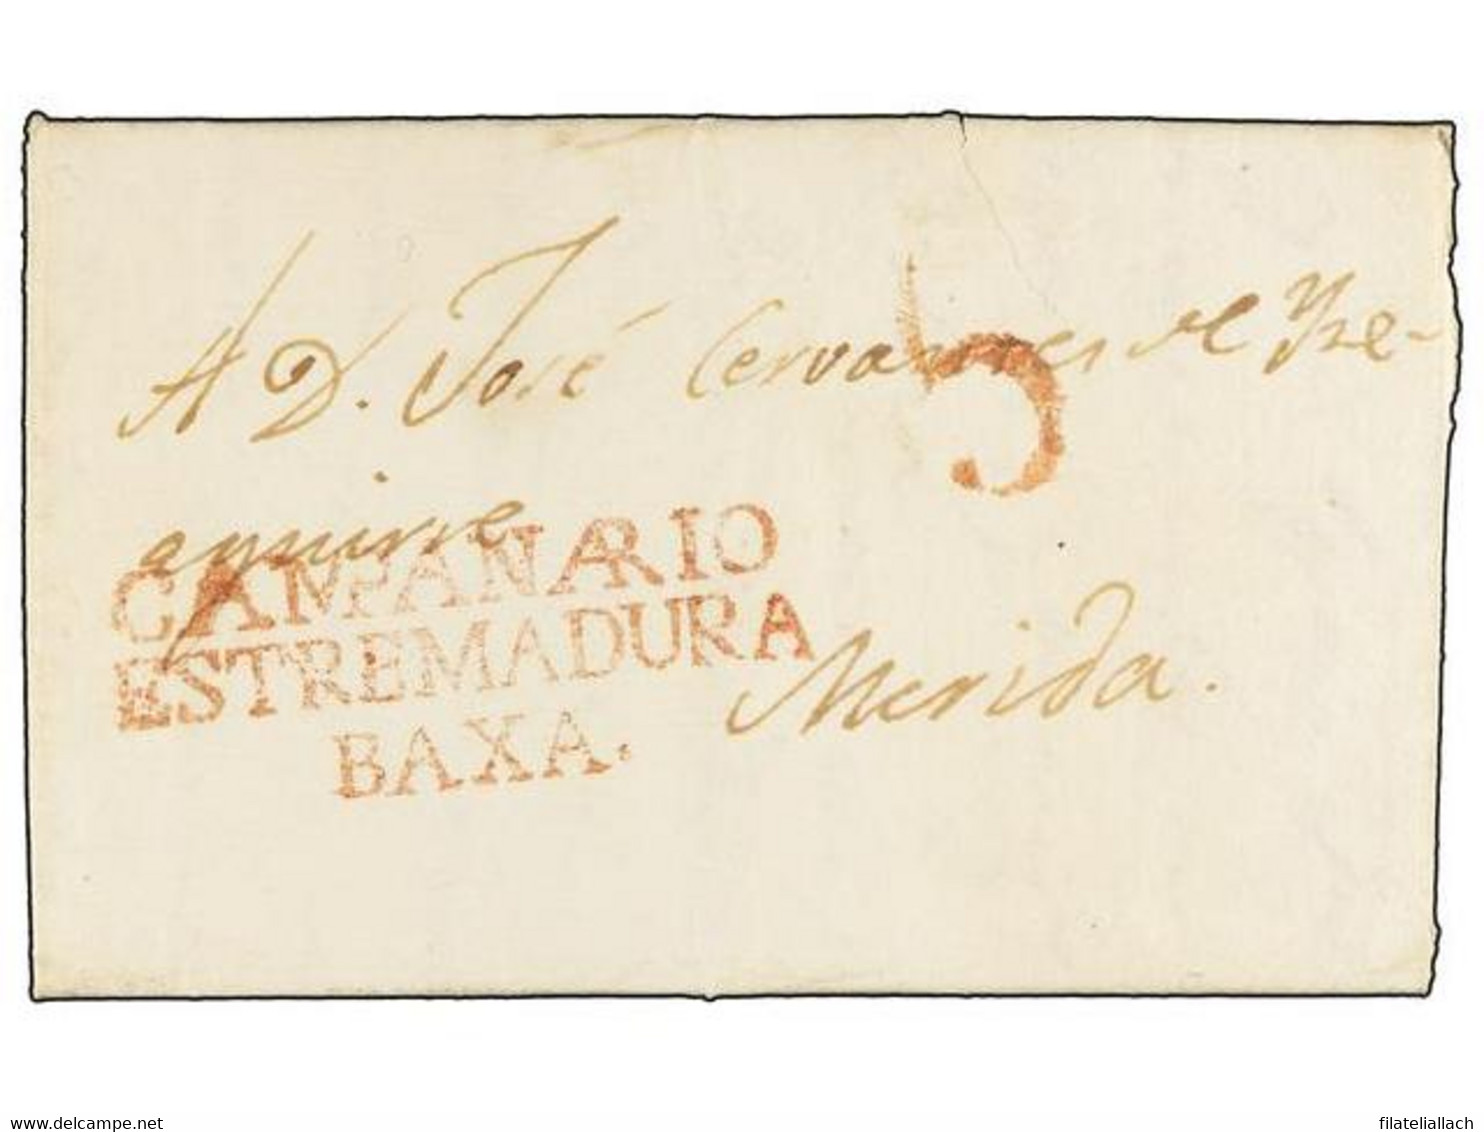 A D. José Cervantes de Yze-
aguirre
5
CAMPANARIO
ESTREMADURA
BAXA.
Merida.
www.delcampe.net
filateliallach